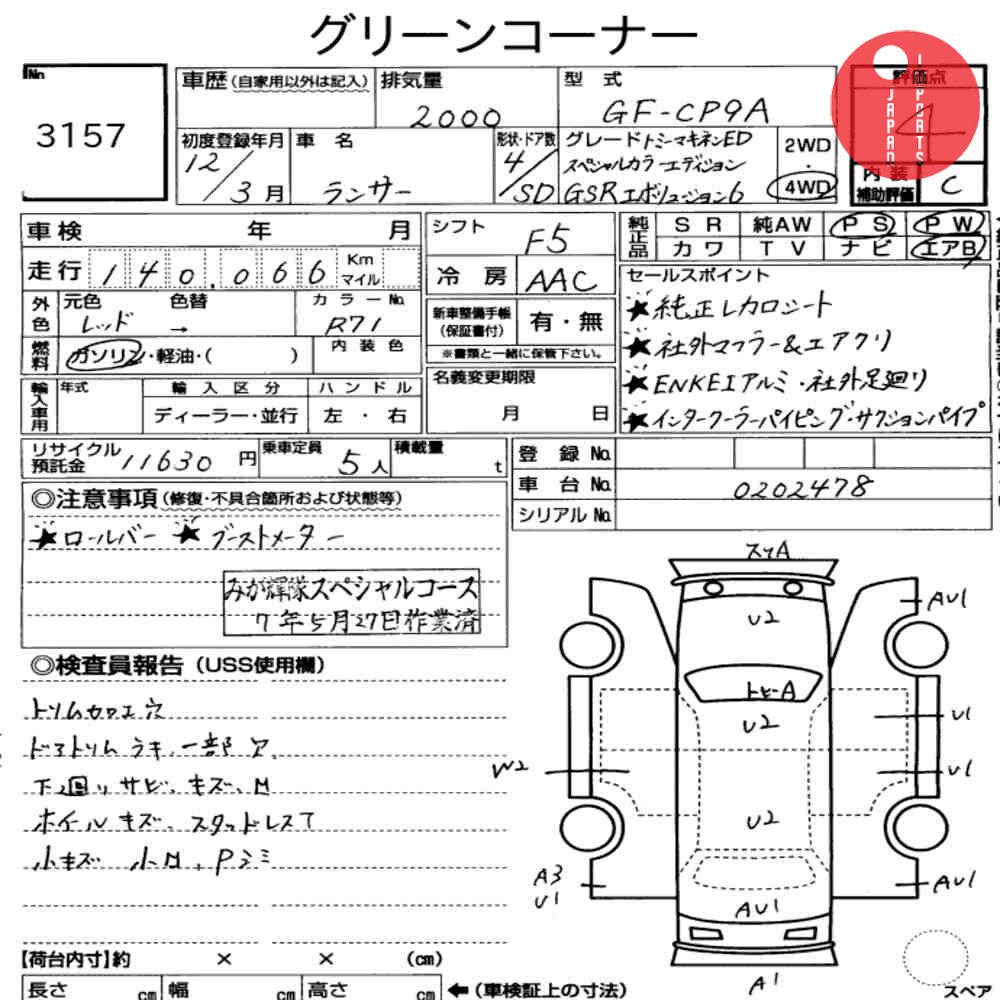 グリーンコーナー
No. 3157
車歴(自家用以外は記入) 排気量 2000 型式 GF-CP9A
評価点 4
JAPAN IMPORTS
初度登録年月 12/3月 車名 ランサー 形状・ドア数 4/SD
グレード トミーマキネンED
スペシャルカラーエディション
GSRエボリューション6
2WD・4WD
内装補助評価 C
車検 年 月 シフト F5
純正品 SR 純AW PS PW
カワ TV ナビ エアB
走行 140,066 Km マイル 冷房 AAC
外色 元色 レッド 色替 → カラーNo. R71
新車整備手帳(保証書付) 有・無
※書類と一緒に保管下さい。
燃料 ガソリン・軽油・( ) 内装色
セールスポイント
★純正レカロシート
★社外マフラー&エアクリ
★ENKEIアルミ・社外足廻り
★インタークーラーパイピング・サクションパイプ
輸入車用 年式 輸入区分 ディーラー・並行 ハンドル 左・右
名義変更期限 月 日
リサイクル預託金 11630円 乗車定員 5人 積載量 t
登録No.
車台No. 0202478
シリアルNo.
◎注意事項(修復・不具合箇所および状態等)
★ロールバー ★ブーストメーター
みが輝隊スペシャルコース
7年5月27日作業済
◎検査員報告(USS使用欄)
トリムカロエ穴
ドアトリムラキ、一部穴
下廻りサビ、キズ、凹
ホイールキズ、スタッドレスT
小キズ 小凹、Pシミ
スリA
U2
AU1
トビーA
U2
U1
W2
U1
U2
A3
U1
AU1
AU1
A1
スペア
【荷台内寸】約 × × (cm)
長さ cm 幅 cm 高さ cm ←(車検証上の寸法)